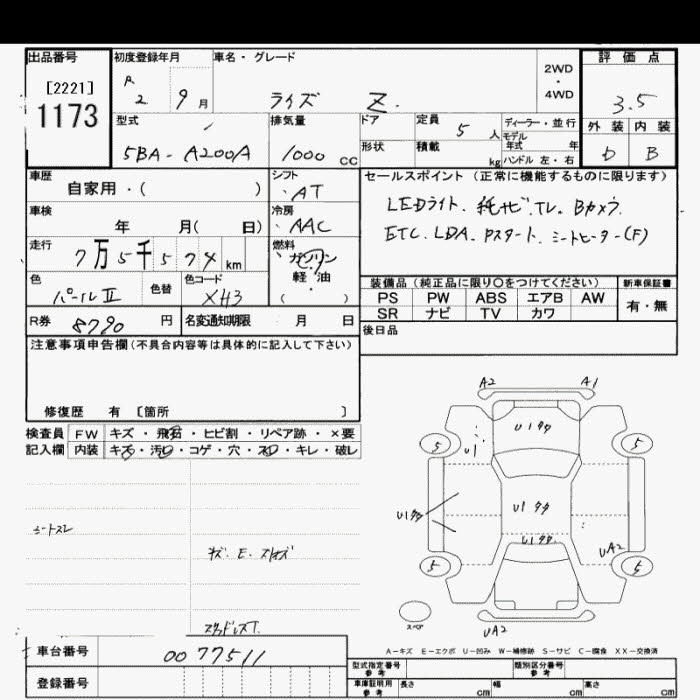 出品番号 初度登録年月 車名・グレード 評価点
[2221]
1173
R 2 9月 ライズ Z. 2WD・4WD 3.5
型式 排気量 ドア 定員 5人 ディーラー・並行 外装 内装
モデル年式 年
5BA-A200A 1000cc 形状 積載 kg ハンドル 左・右 D B
車歴 シフト セールスポイント(正常に機能するものに限ります)
自家用・( ) AT LEDライト、純ナビ、TV、Bカメラ
車検 冷房
年 月( 日) AAC ETC. LDA. Pスタート. シートヒーター(F)
走行 燃料
7万5千574km ガソリン
軽・油
( )
色 色替 色コード 装備品(純正品に限り○をつけてください) 新車保証書
パールII XH3 PS PW ABS エアB AW 有・無
SR ナビ TV カワ
R券 8790円 名変通知期限 月 日 後日品
注意事項申告欄(不具合内容等は具体的に記入して下さい)
修復歴 有 [箇所 ]
検査員 FW キズ・飛石・ヒビ割・リペア跡・×要
記入欄 内装 キズ・汚れ・コゲ・穴・スレ・キレ・破レ
A2 A1
U1タタ
5 U1 5
U1タタ U1タタ
U1タタ
UA2
5 5
スペア UA2
シートスレ
キズ. E.
スタッドレスT.
A-キズ E-エクボ U-凹み W-補修跡 S-サビ C-腐食 XX-交換済
車台番号 0077511
型式指定番号 参考 類別区分番号 参考
登録番号 車庫証明用 参考 長さ cm 幅 cm 高さ cm